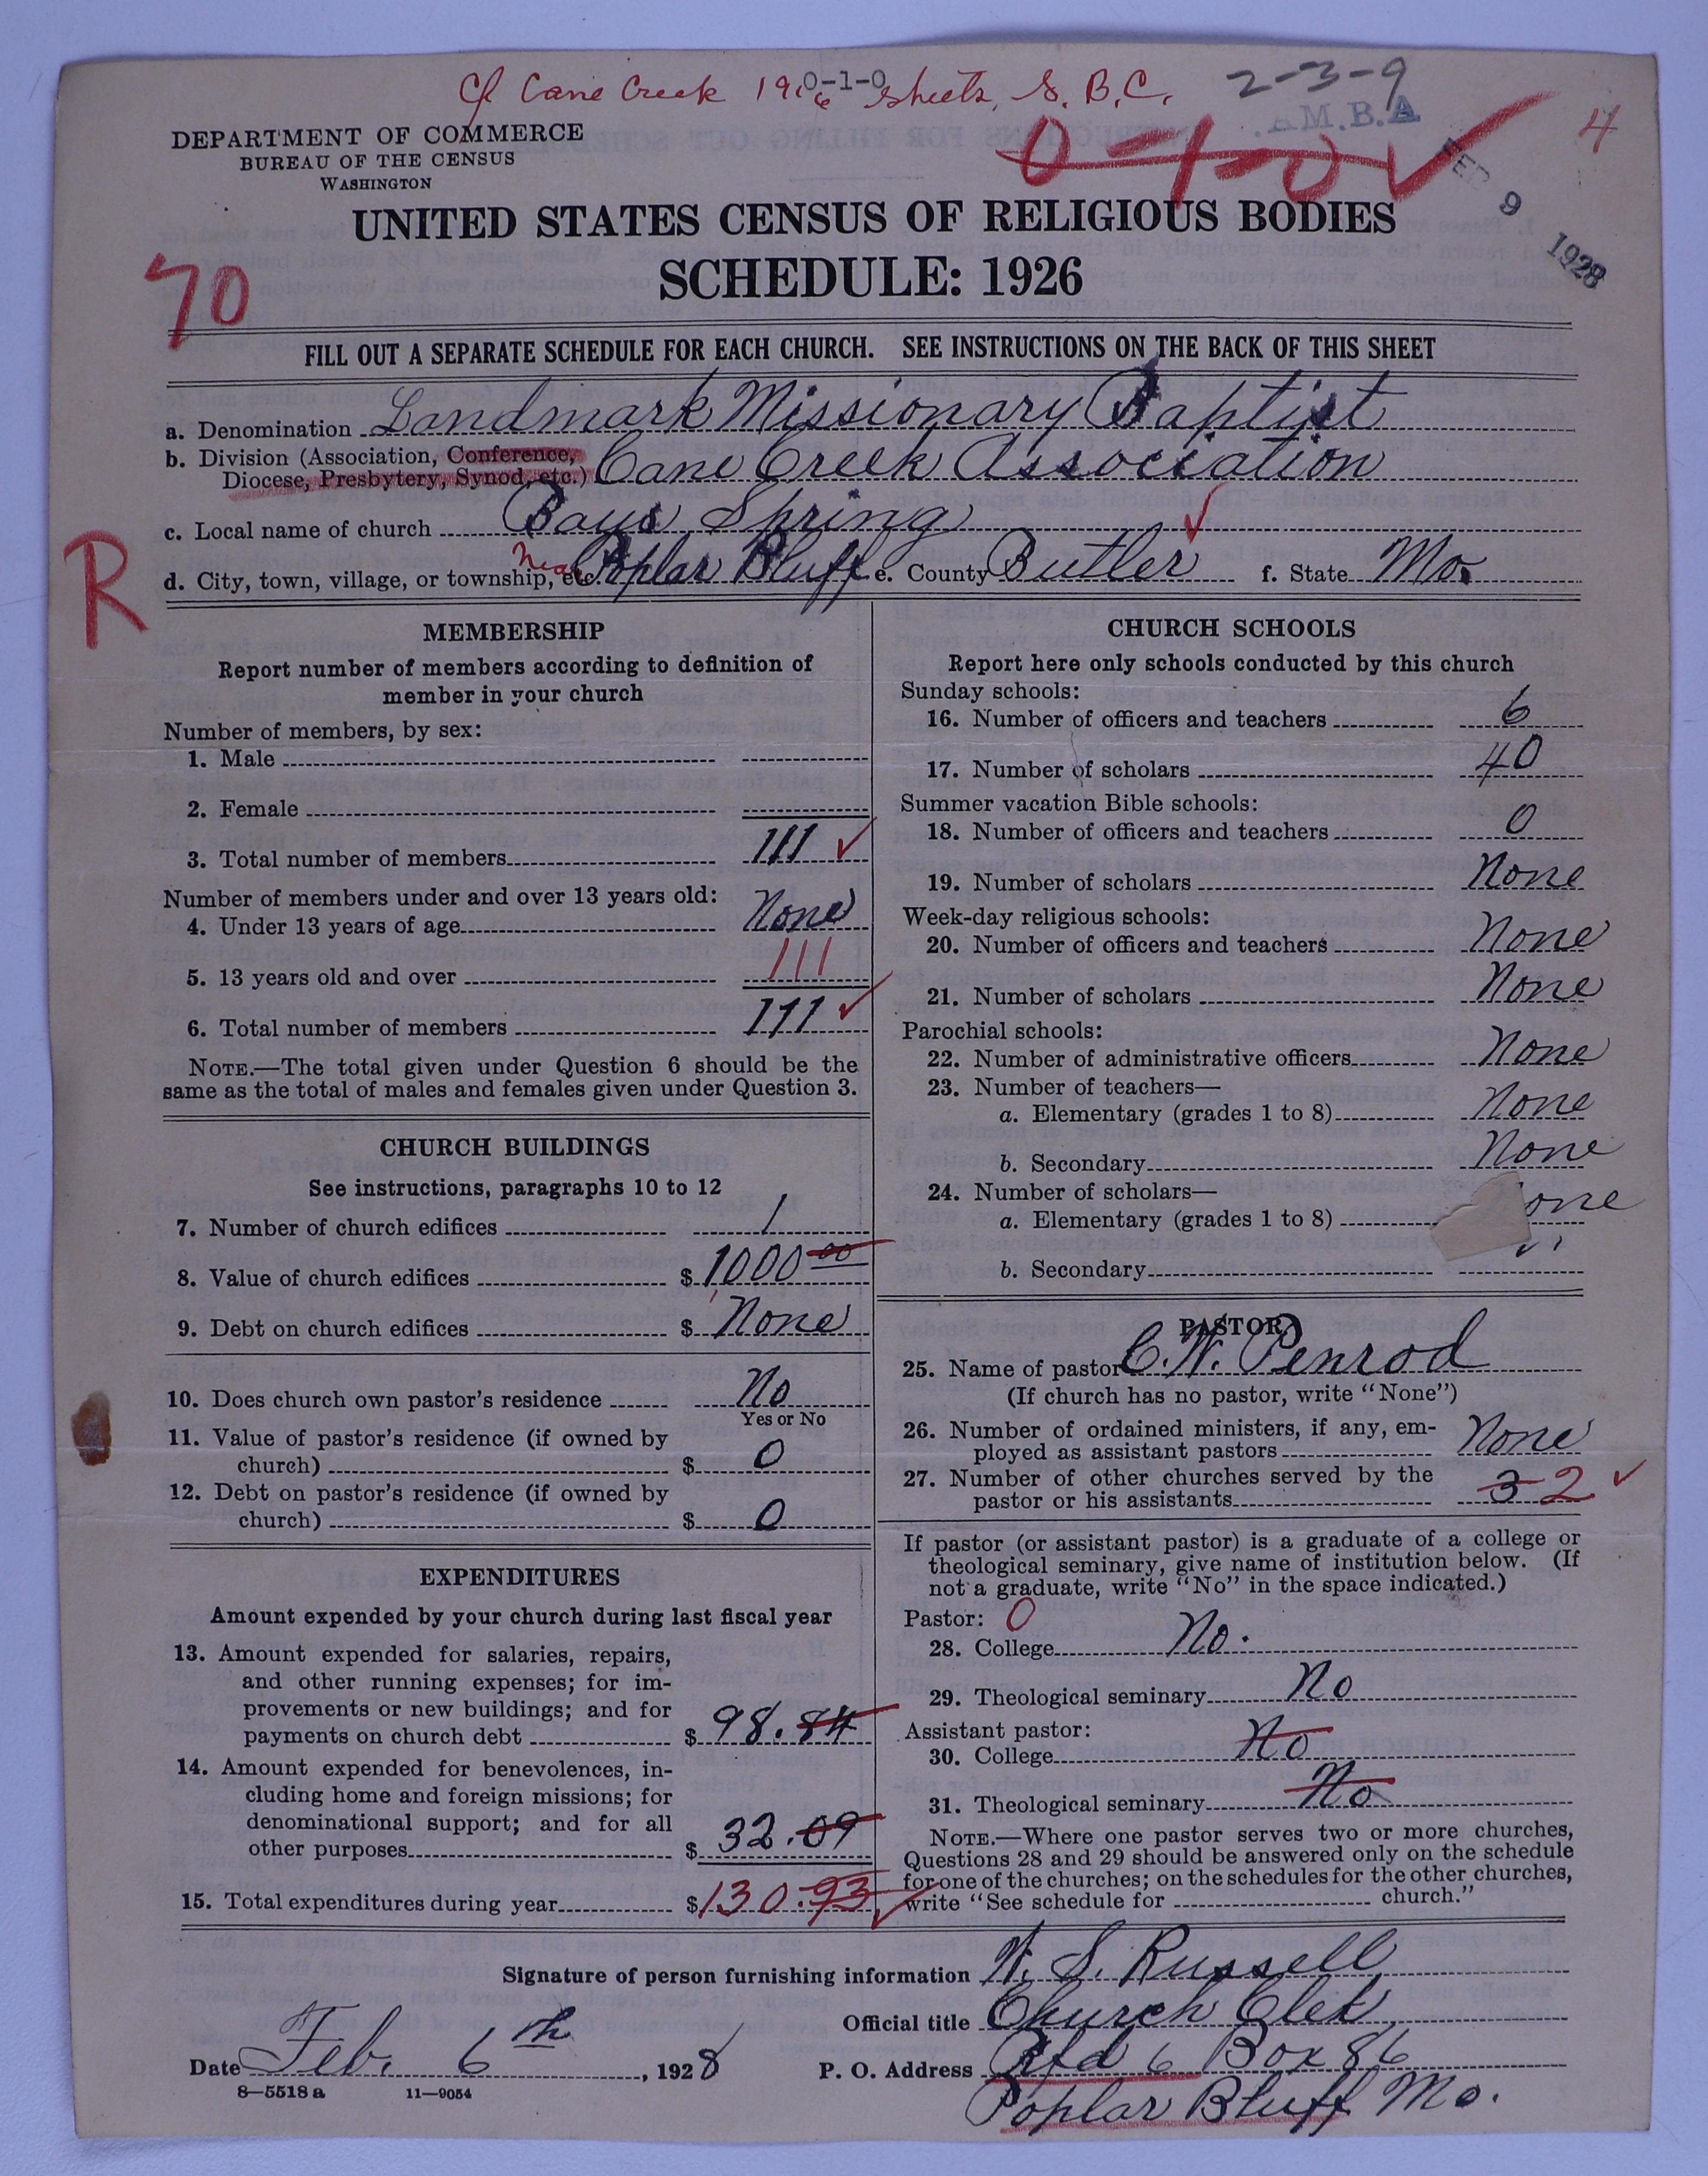 Cf Cane Creek 1906 sheets, S. B. C.
0-1-0
2-3-9
M.B.A
0-1-0
4
FEB 9 1928
DEPARTMENT OF COMMERCE
BUREAU OF THE CENSUS
WASHINGTON
UNITED STATES CENSUS OF RELIGIOUS BODIES
SCHEDULE: 1926
70
FILL OUT A SEPARATE SCHEDULE FOR EACH CHURCH. SEE INSTRUCTIONS ON THE BACK OF THIS SHEET
a. Denomination Landmark Missionary Baptist
b. Division (Association, Conference, Diocese, Presbytery, Synod, etc.) Cane Creek Association
c. Local name of church Bays Spring
R
d. City, town, village, or township, etc. Near Poplar Bluff e. County Butler f. State Mo.
MEMBERSHIP
Report number of members according to definition of
member in your church
Number of members, by sex:
1. Male
2. Female
3. Total number of members 111
Number of members under and over 13 years old:
4. Under 13 years of age None
5. 13 years old and over 111
6. Total number of members 111
NOTE.—The total given under Question 6 should be the
same as the total of males and females given under Question 3.
CHURCH BUILDINGS
See instructions, paragraphs 10 to 12
7. Number of church edifices 1
8. Value of church edifices $ 1000 00
9. Debt on church edifices $ None
10. Does church own pastor's residence No
Yes or No
11. Value of pastor's residence (if owned by
church) $ 0
12. Debt on pastor's residence (if owned by
church) $ 0
EXPENDITURES
Amount expended by your church during last fiscal year
13. Amount expended for salaries, repairs,
and other running expenses; for im-
provements or new buildings; and for
payments on church debt $ 98.84
14. Amount expended for benevolences, in-
cluding home and foreign missions; for
denominational support; and for all
other purposes $ 32.09
15. Total expenditures during year $ 130.93
CHURCH SCHOOLS
Report here only schools conducted by this church
Sunday schools:
16. Number of officers and teachers 6
17. Number of scholars 40
Summer vacation Bible schools:
18. Number of officers and teachers 0
19. Number of scholars None
Week-day religious schools:
20. Number of officers and teachers None
21. Number of scholars None
Parochial schools:
22. Number of administrative officers None
23. Number of teachers—
a. Elementary (grades 1 to 8) None
b. Secondary None
24. Number of scholars—
a. Elementary (grades 1 to 8) one
b. Secondary
PASTOR
25. Name of pastor C. W. Penrod
(If church has no pastor, write "None")
26. Number of ordained ministers, if any, em-
ployed as assistant pastors None
27. Number of other churches served by the
pastor or his assistants 3 2
If pastor (or assistant pastor) is a graduate of a college or
theological seminary, give name of institution below. (If
not a graduate, write "No" in the space indicated.)
Pastor: 0
28. College No.
29. Theological seminary No
Assistant pastor:
30. College No
31. Theological seminary No
NOTE.—Where one pastor serves two or more churches,
Questions 28 and 29 should be answered only on the schedule
for one of the churches; on the schedules for the other churches,
write "See schedule for church."
Signature of person furnishing information W. S. Russell
Official title Church Clek
Date Feb. 6th, 1928 P. O. Address Rfd 6 Box 86
8—5518a 11—9054
Poplar Bluff Mo.